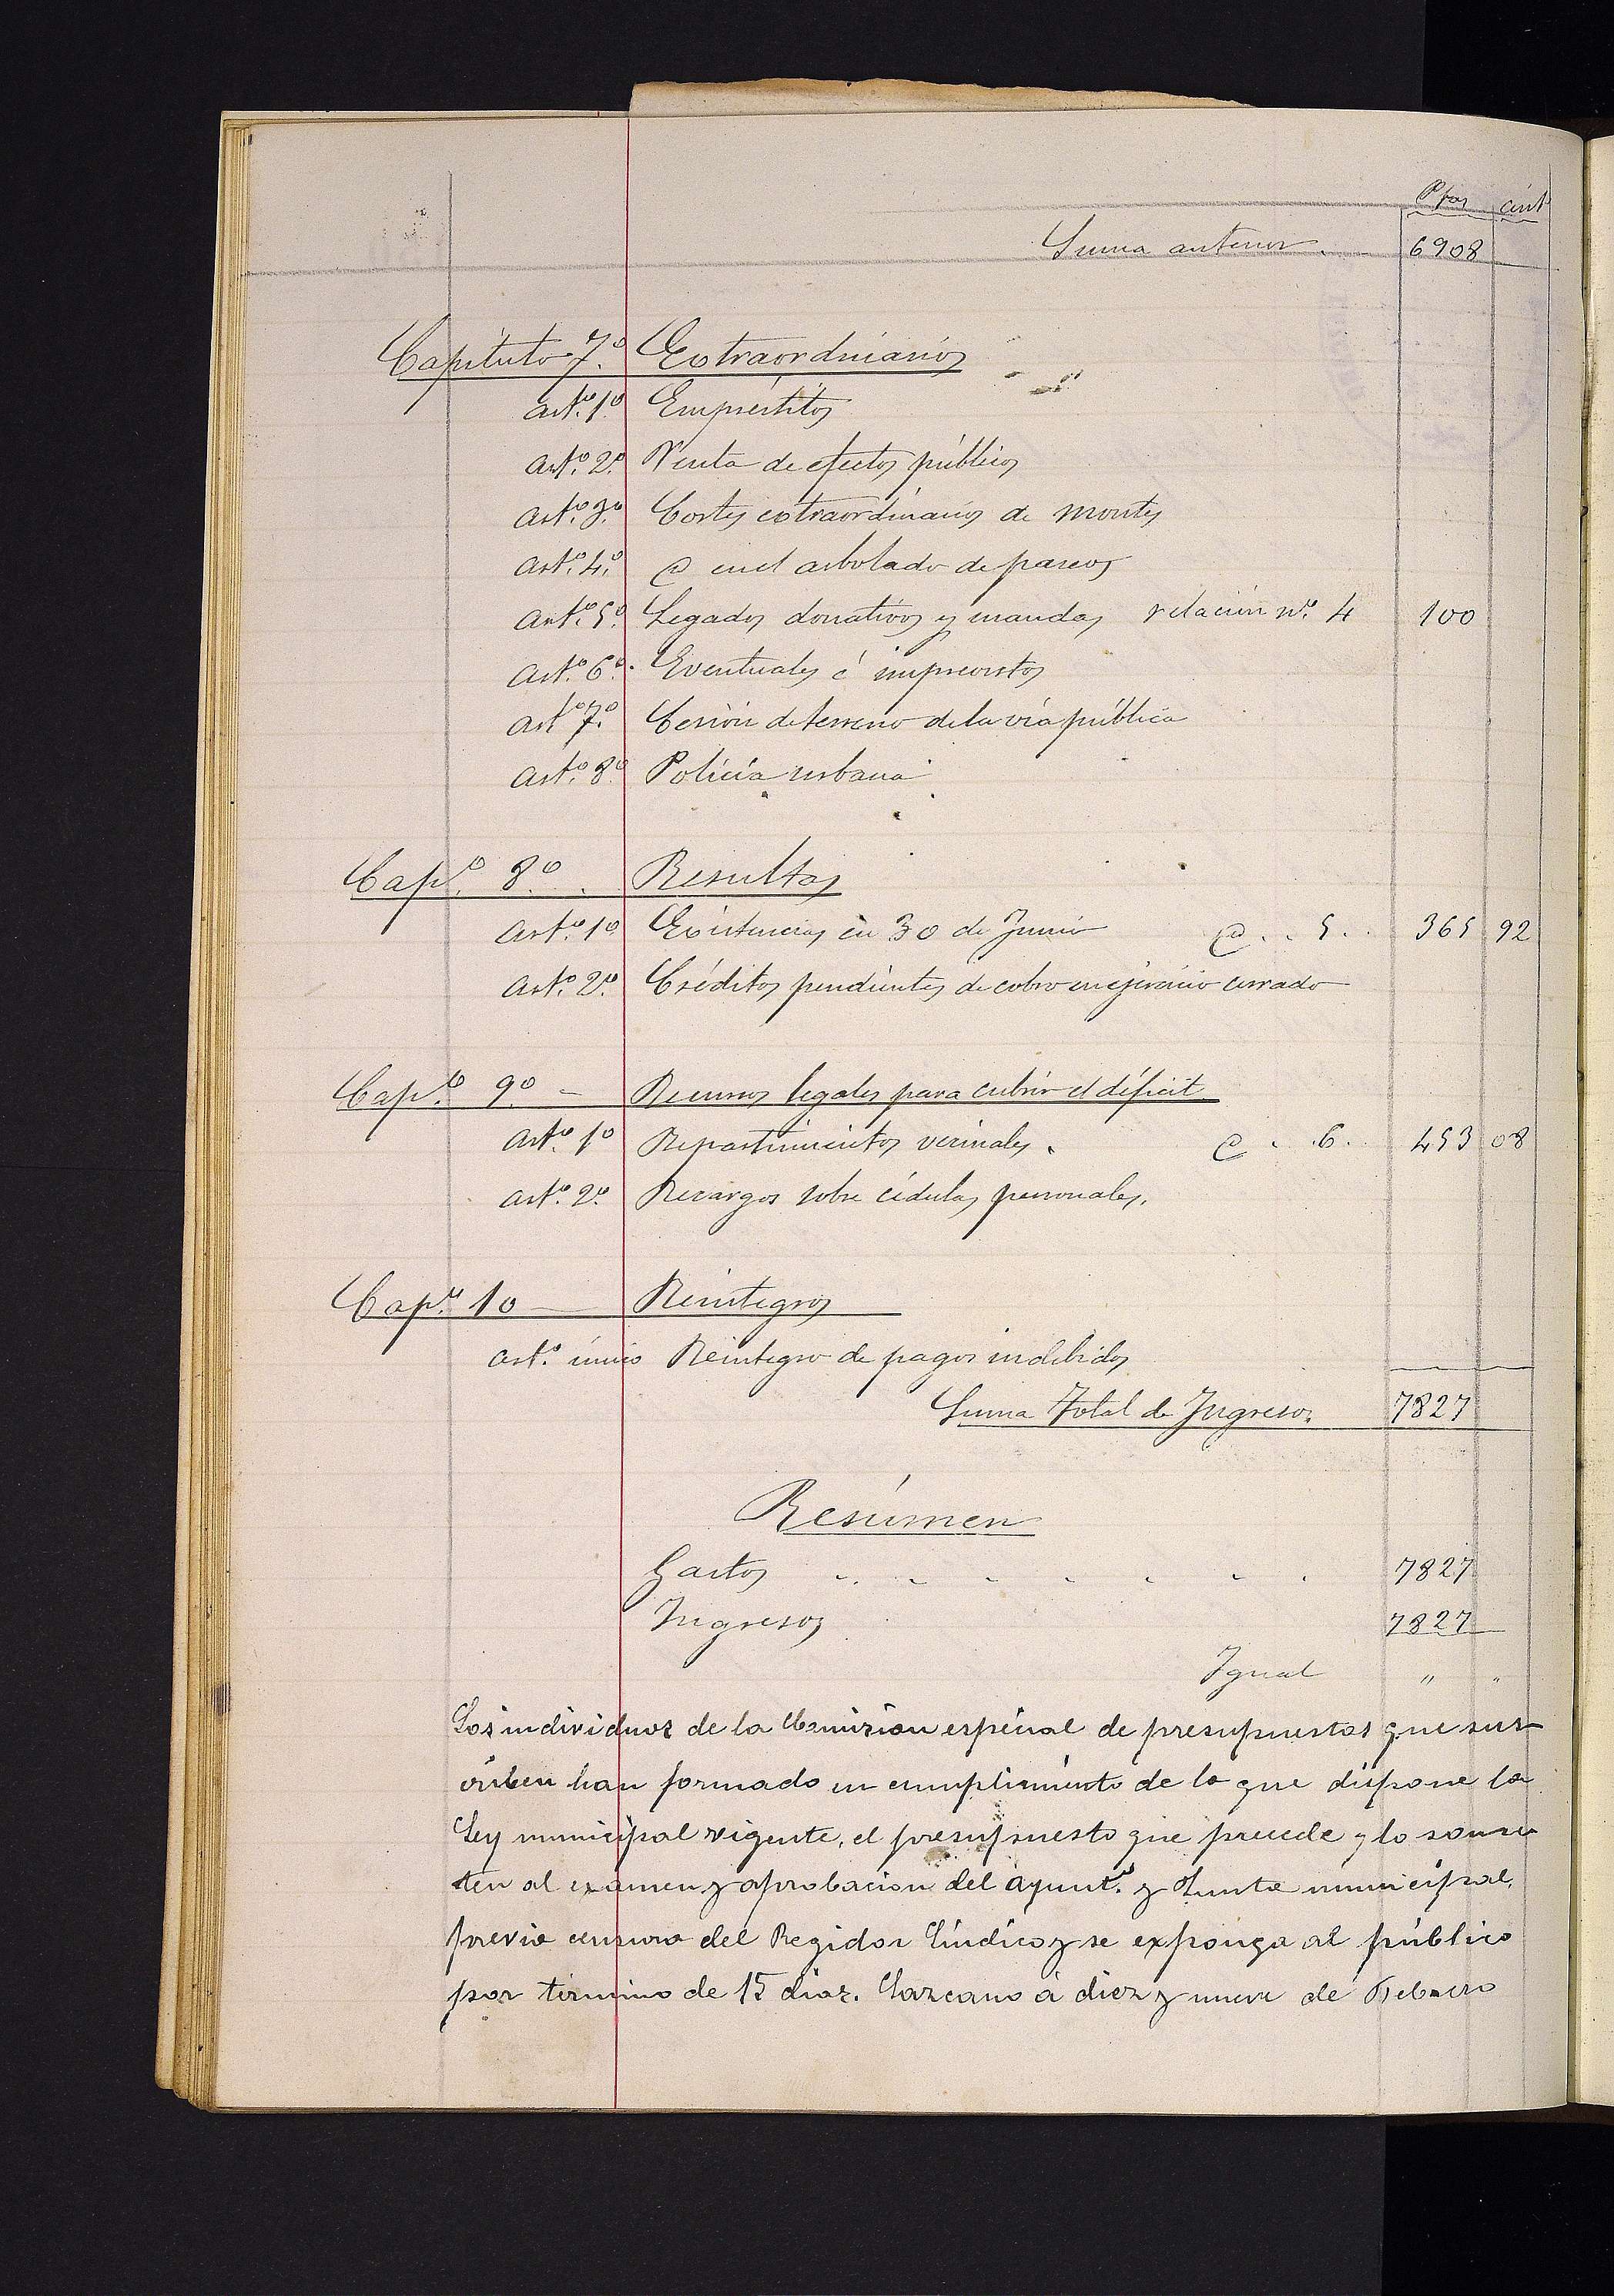 Ptas cént
Suma anterior 6908
Capítulo 7.º Extraordinarios
Art.º 1.º Empréstitos
Art.º 2.º Venta de efectos públicos
Art.º 3.º Cortes extraordinarios de montes
Art.º 4.º @ en el arbolado de paseos
Art.º 5.º Legados donativos y mandas relación n.º 4 100
Art.º 6.º Eventuales é imprevistos
Art.º 7.º Cesión de terreno de la vía pública
Art.º 8.º Policía urbana
Cap.º 8.º Resultas
Art.º 1.º Existencias en 30 de Junio @ . . 5 . 365 92
Art.º 2.º Créditos pendientes de cobro en ejercicio cerrado
Cap.º 9.º - Recursos legales para cubrir el déficit
Art.º 1.º Repartimientos vecinales. @ . . 6 . 453 08
Art.º 2.º Recargos sobre cédulas personales.
Cap.º 10 — Reintegros
Art.º único Reintegro de pagos indebidos
Suma Total de Ingresos 7827
Resúmen
Gastos . . . . . . . 7827
Ingresos 7827
Igual " "
Los individuos de la Comision especial de presupuestos que sus-
criben han formado en cumplimiento de lo que dispone la
Ley municipal vigente, el presupuesto que precede y lo some
ten al examen y aprobacion del Ayunt.º y Junta municipal,
previa censura del Regidor Síndico y se exponga al público
por término de 15 dias. Lazcano á diez y nueve de Febrero